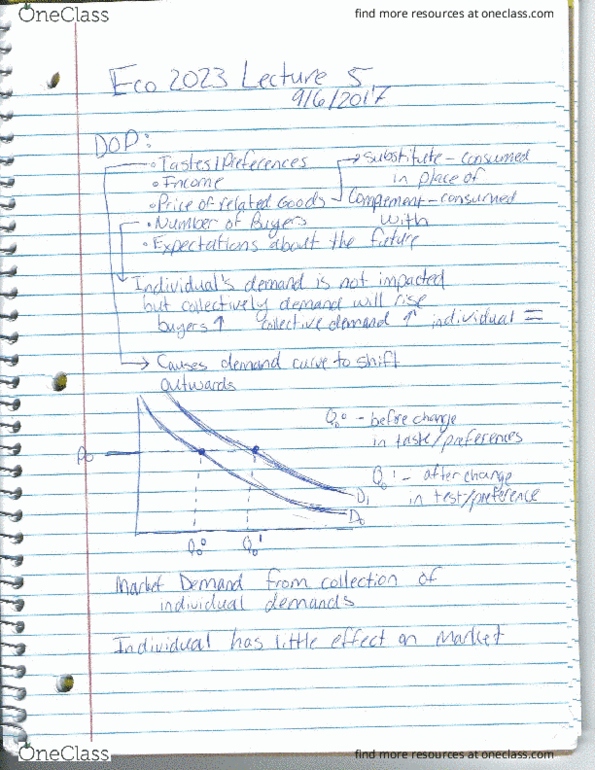 OneClass
find more resources at oneclass.com
Eco 2023 Lecture 5
9/6/2017
DOP:
• Tastes/Preferences
→ substitute - consumed
in place of
• Income
• Price of related Goods
Complement - consumed
with
• Number of Buyers
• Expectations about the future
Individual's demand is not impacted
but collectively demand will rise
buyers ↑ collective demand ↑ individual =
→ Causes demand curve to shift
outwards
Q₀⁰ - before change
in taste/preferences
P₀
Q₀¹ - after change
in test/preference
D₁
D₀
Q₀⁰ Q₀¹
Market Demand from collection of
individual demands
Individual has little effect on market
OneClass
find more resources at oneclass.com